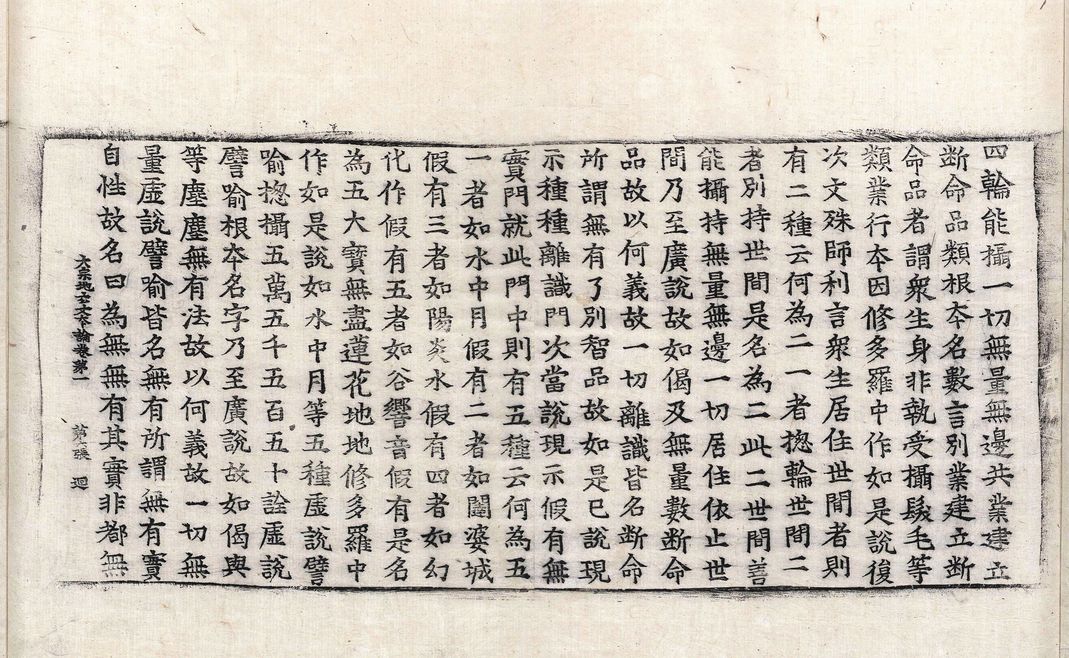 四輪能攝一切無量無邊共業建立
断命品類根夲名數言別業建立断
命品者謂衆生身非執受攝髮毛等
類業行夲因修多羅中作如是說復
次文殊師利言衆生居住世間者則
有二種云何為二一者揔輪世間二
者別持世間是名為二此二世間善
能攝持無量無邊一切居住依止世
間乃至廣說故如偈及無量數断命
品故以何義故一切離識皆名断命
所謂無有了別智品故如是已說現
示種種離識門次當說現示假有無
實門就此門中則有五種云何為五
一者如水中月假有二者如闥婆城
假有三者如陽炎水假有四者如幻
化作假有五者如谷響音假有是名
為五大寶無盡蓮花地地修多羅中
作如是說如水中月等五種虛說譬
喻揔攝五萬五千五百五十詮虛說
譬喻根夲名字乃至廣說故如偈與
等塵塵無有法故以何義故一切無
量虛說譬喻皆名無有所謂無有實
自性故名曰為無無有其實非都無
大宗地玄文夲論卷第一 第張 廻